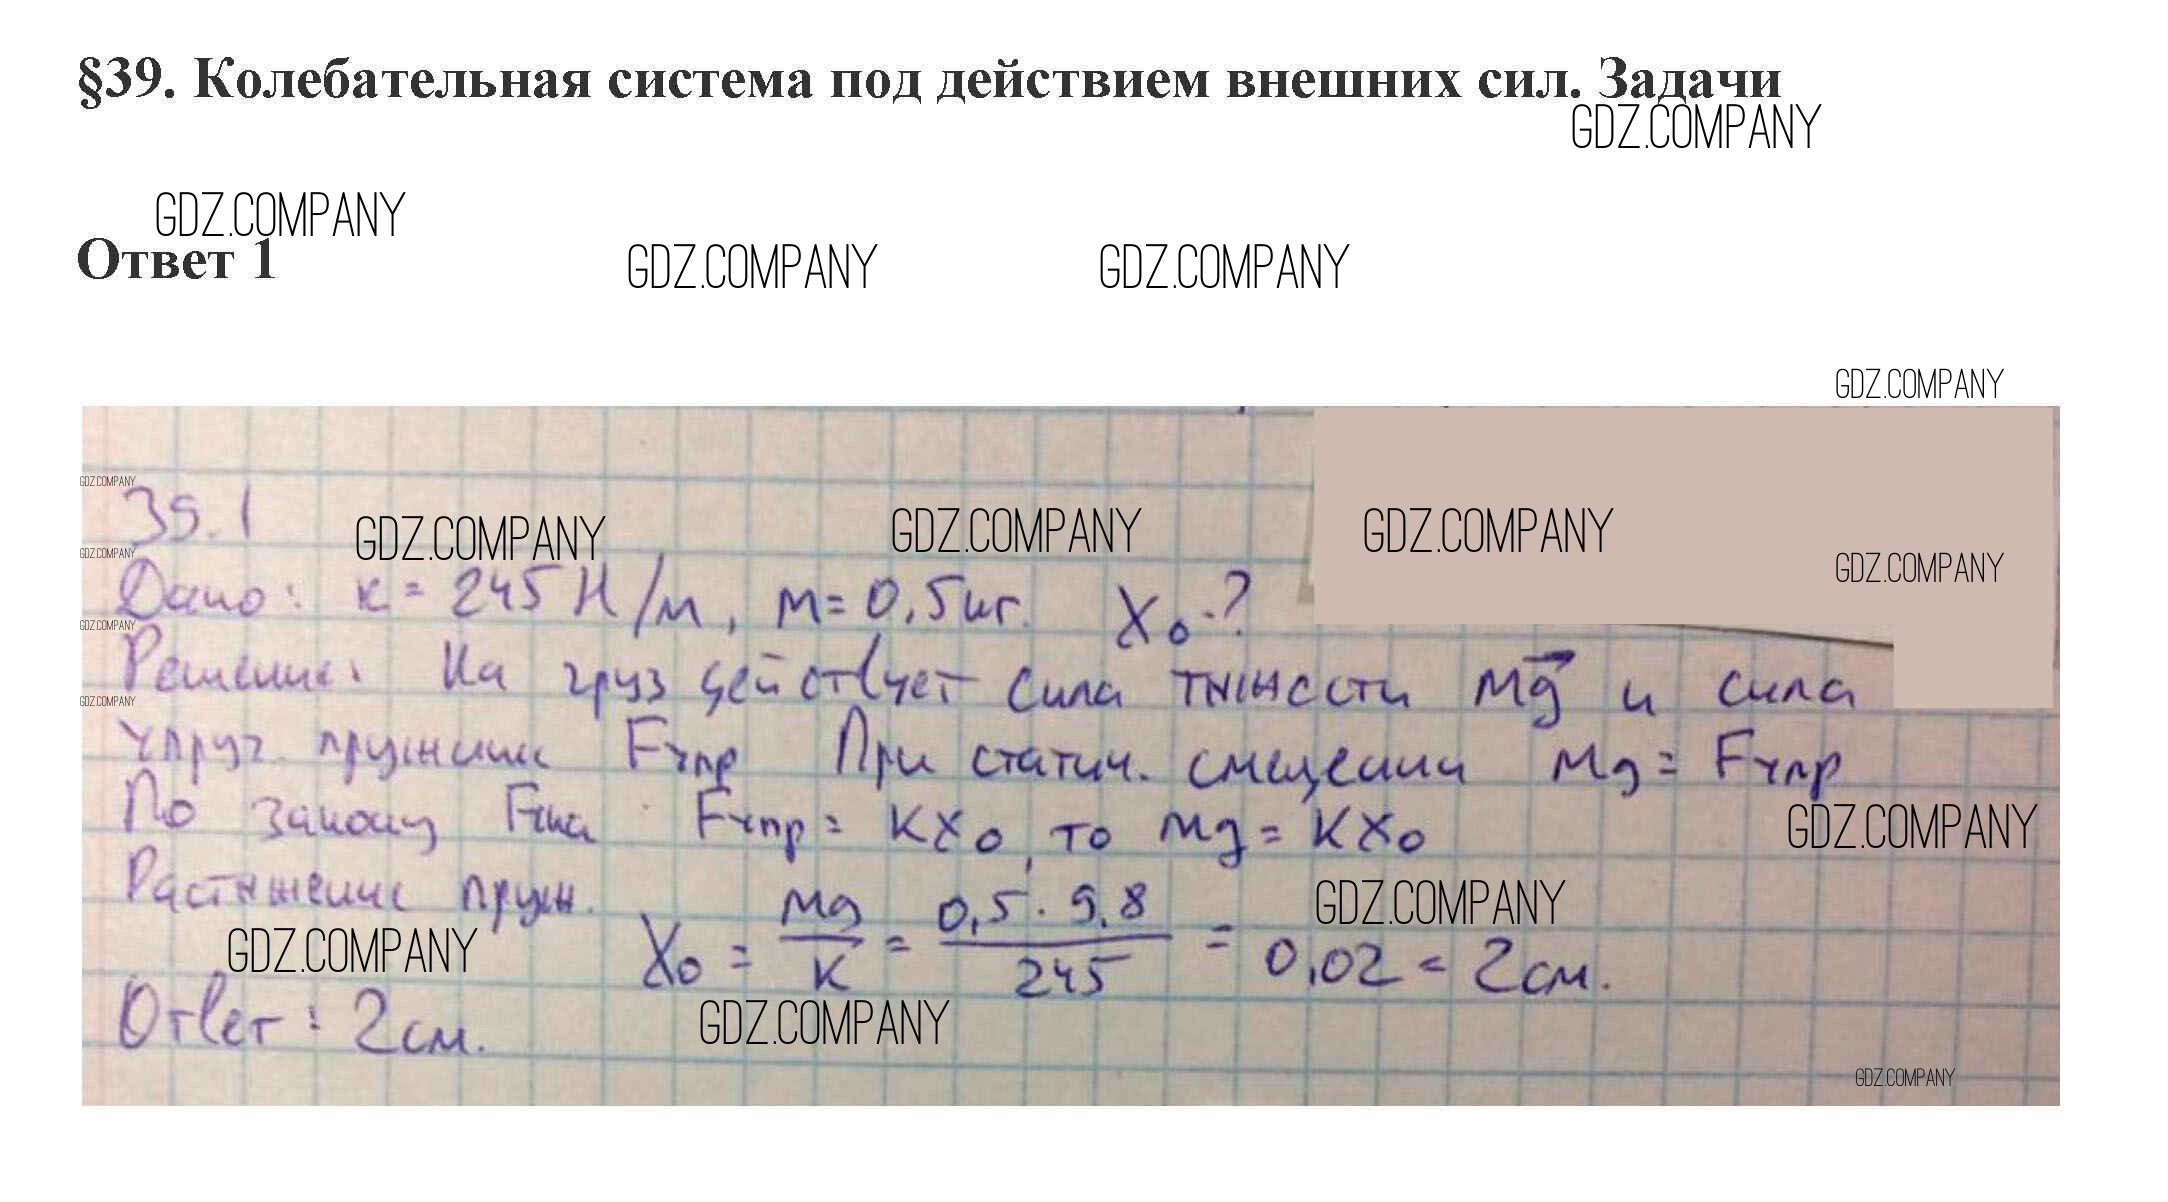 §39. Колебательная система под действием внешних сил. Задачи
GDZ.COMPANY
GDZ.COMPANY
Ответ 1
GDZ.COMPANY GDZ.COMPANY
GDZ.COMPANY
GDZ.COMPANY
39.1
GDZ.COMPANY GDZ.COMPANY GDZ.COMPANY
GDZ.COMPANY
GDZ.COMPANY
Дано: k = 245 Н/м, m = 0,5 кг. X₀-?
GDZ.COMPANY
Решение: На груз действует сила тяжести mg⃗ и сила
GDZ.COMPANY
упруг. пружины Fупр При статич. смещении mg = Fупр
По закону Гука Fупр = kx₀, то mg = kx₀
GDZ.COMPANY
Растяжение пруж. X₀ = mg/k = 0,5 · 9,8/245 = 0,02 = 2 см.
GDZ.COMPANY
GDZ.COMPANY
Ответ: 2 см.
GDZ.COMPANY
GDZ.COMPANY